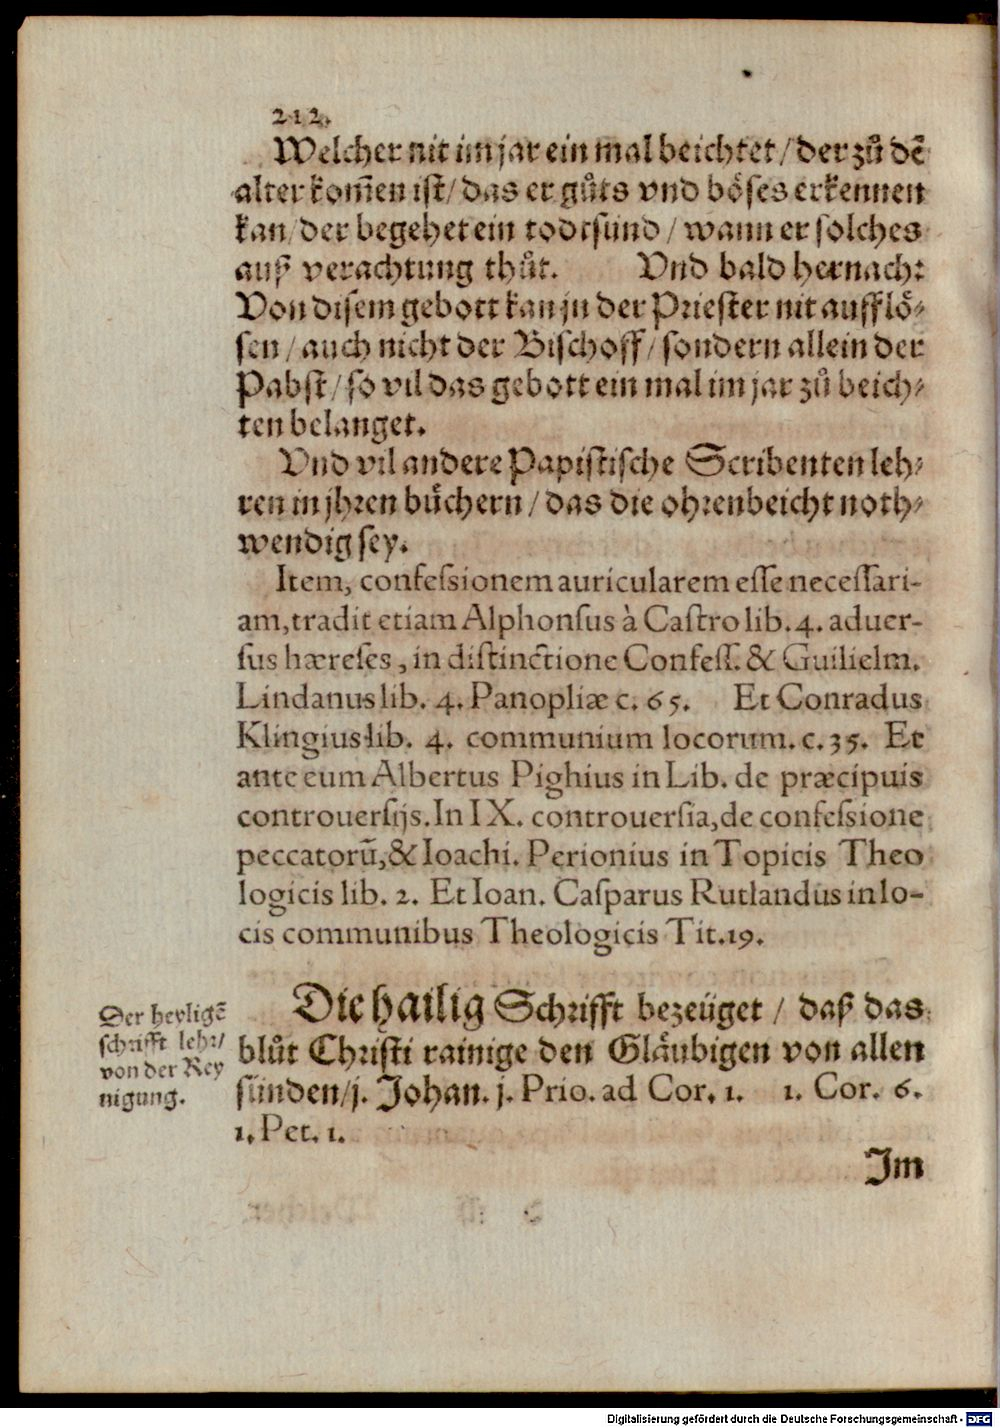 212.
Welcher nit im jar ein mal beichtet / der zů dē
alter kom̄en ist / das er gůts vnd böses erkennen
kan / der begehet ein todtsünd / wann er solches
auß verachtung thůt. Vnd bald hernach:
Von disem gebott kan jn der Priester nit aufflö-
sen / auch nicht der Bischoff / sondern allein der
Pabst / so vil das gebott ein mal im jar zů beich-
ten belanget.
Vnd vil andere Papistische Scribenten leh-
ren in jhren bůchern / das die ohrenbeicht noth-
wendig sey.
Item, confessionem auricularem esse necessari-
am, tradit etiam Alphonsus à Castro lib. 4. aduer-
sus hæreses, in distinctione Confess. & Guilielm.
Lindanus lib. 4. Panopliæ c. 65. Et Conradus
Klingius lib. 4. communium locorum. c. 35. Et
ante eum Albertus Pighius in Lib. de præcipuis
controuersijs. In IX. controuersia, de confessione
peccatorū, & Ioachi. Perionius in Topicis Theo
logicis lib. 2. Et Ioan. Casparus Rutlandus in lo-
cis communibus Theologicis Tit. 19.
Der heyligē
schrifft lehr /
von der Rey
nigung.
Die hailig Schrifft bezeüget / daß das
blůt Christi rainige den Gläubigen von allen
sünden / j. Johan. j. Prio. ad Cor. 1. 1. Cor. 6.
1. Pet. 1.
Im
Digitalisierung gefördert durch die Deutsche Forschungsgemeinschaft - DFG